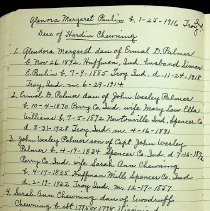 Glenora Margaret Paulin b. 1-25-1916 Troy Ind
Desc of Hardin Chewning
1. Glenora Margaret dau of Ernal D. Palmer
b. Nov 26, 1892, Huffman, Ind. husband Simon
E. Paulin b. 7-9-1885 Troy Ind. d. 11-24-1918
Troy, Ind. m. 6-29-1914
2. Ernal D. Palmer dau of John Wesley Palmer
b. 10-4-1870 Perry Co Ind. wife Mary Lou Ellen
Williams b. 7-5-1872 Newtonville Ind Spencer Co
d. 8-31-1928 Troy, Ind. m. 4-16-1891
3. John Wesley Palmer son of Capt John Wesley
Palmer b. 4-4-1834 Spencer Co Ind. d. 7-16-1892
Perry Co Ind. wife Sarah Ann Chewning
b. 4-19-1835 Huffman Mills Spencer Co Ind.
d. 2-19-1922 Troy Ind. m. 12-19-1857
4. Sarah Ann Chewning dau of Woodruff
Chewning b. est 1795 or 1794